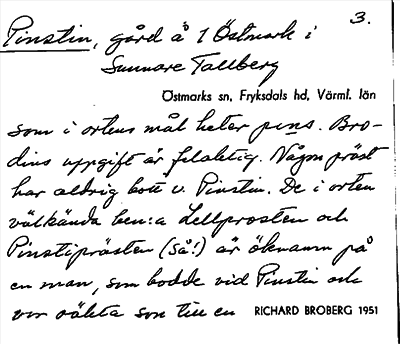 3.
Pinstin, gård å 1 Östmark i
Sunnare Tallberg
Östmarks sn, Fryksdals hd, Värml. län
som i ortens mål heter pins. Bro-
dins uppgift är felaktig. Någon präst
har aldrig bott v. Pinstin. De i orten
välkända ben:a Lellprosten och
Pinstiprästen (så!) är öknamn på
en man, som bodde vid Pinstin och
var oäkta son till en RICHARD BROBERG 1951